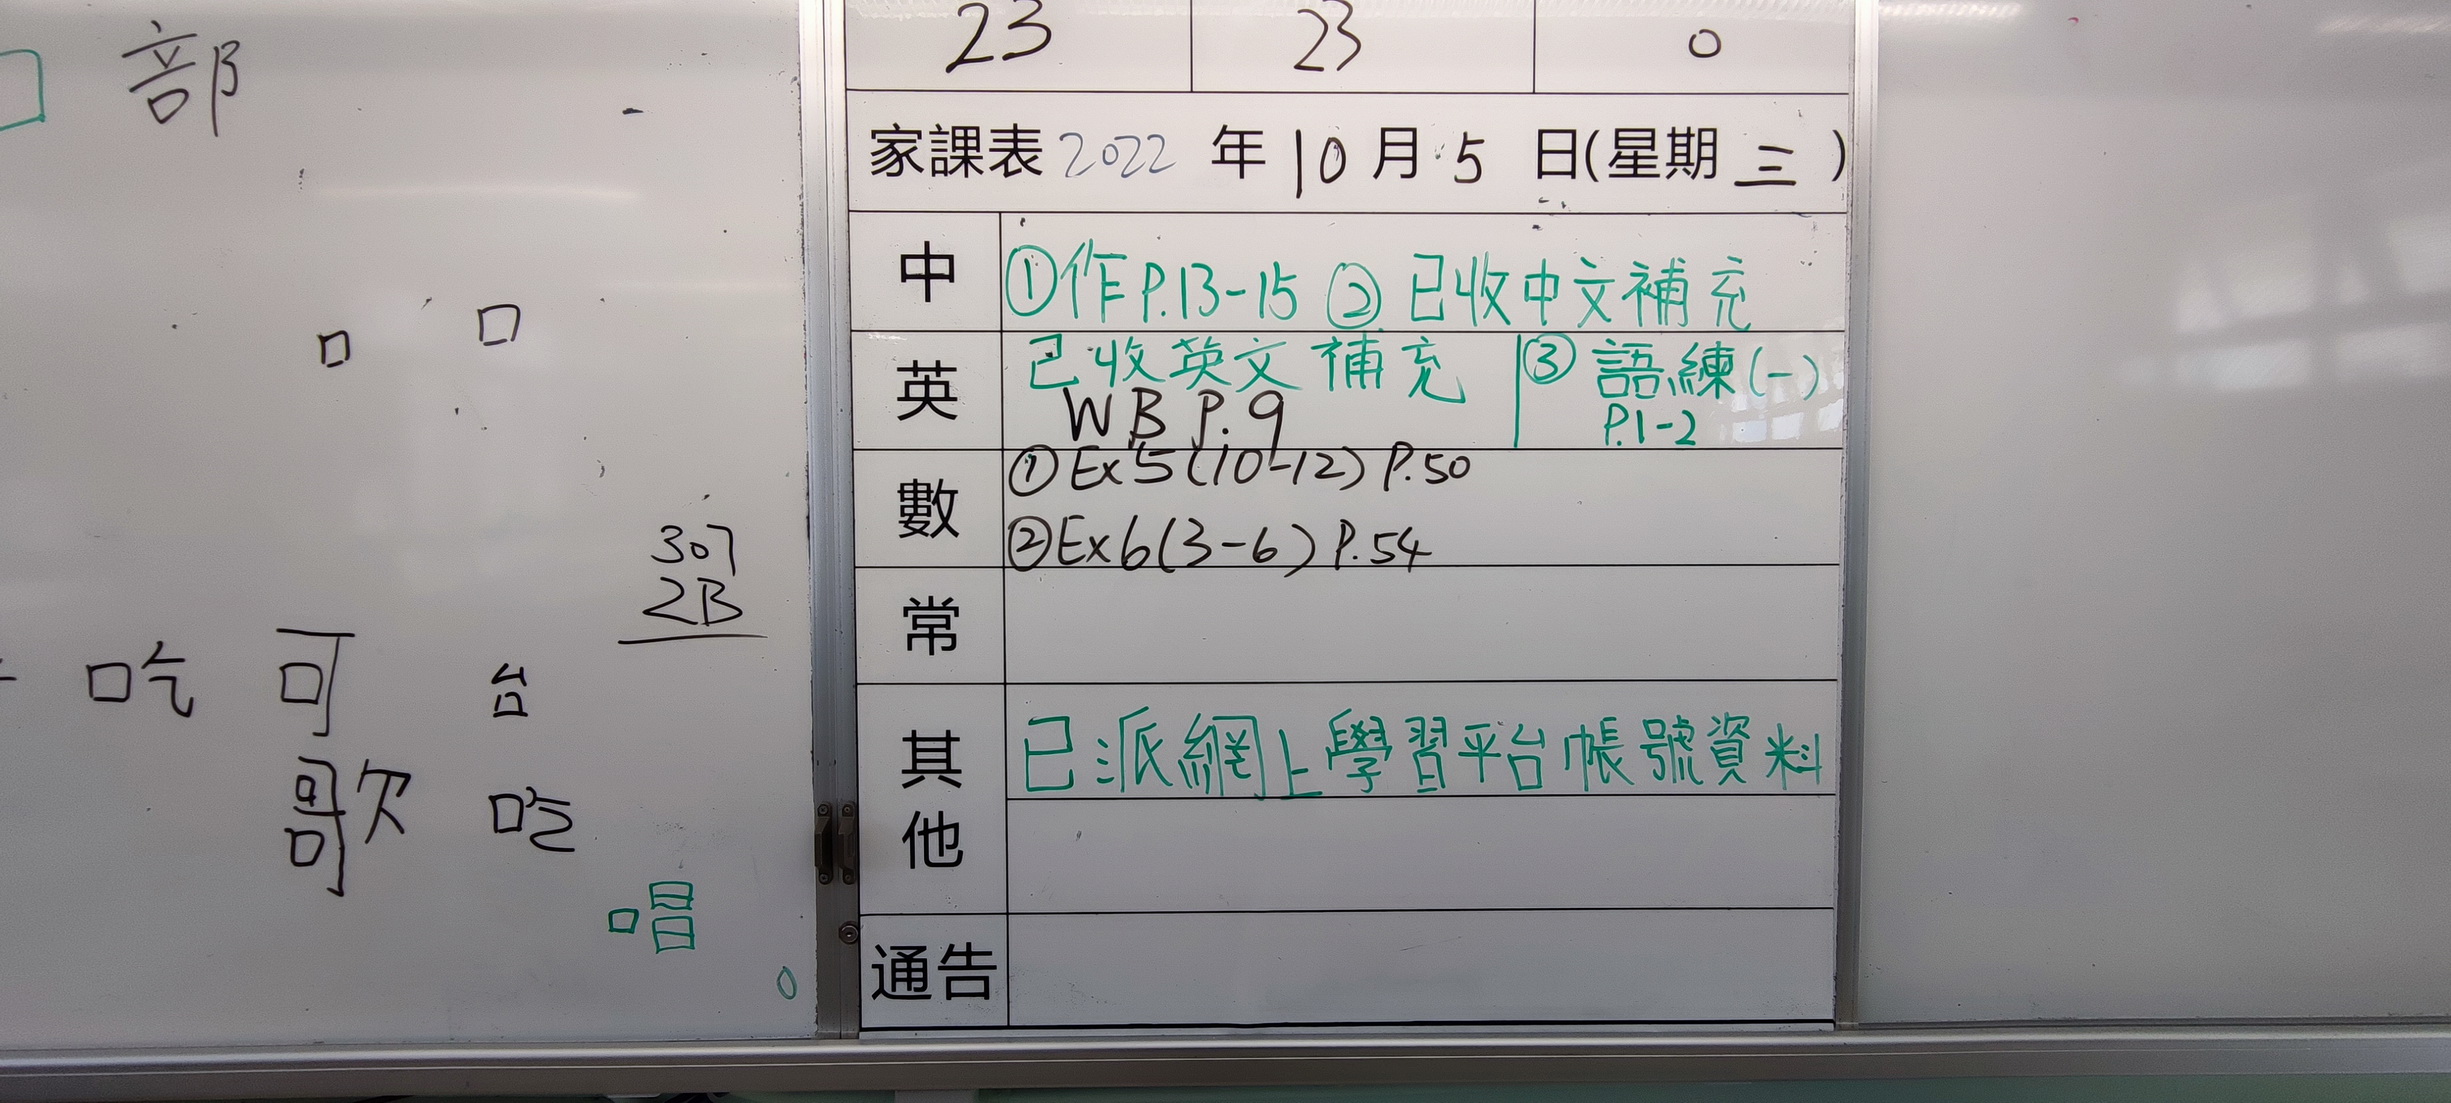 口 部
口 口
307
2B
吃 可 台
歌 吃
唱
0
23 23 0
家課表 2022 年 10 月 5 日(星期 三 )
中 ①作P.13-15 ② 已收中文補充
英 已收英文補充 ③ 語練(一)
WB P.9 P.1-2
數 ①Ex5(10-12) P.50
②Ex6(3-6) P.54
常
其他 已派網上學習平台帳號資料
通告